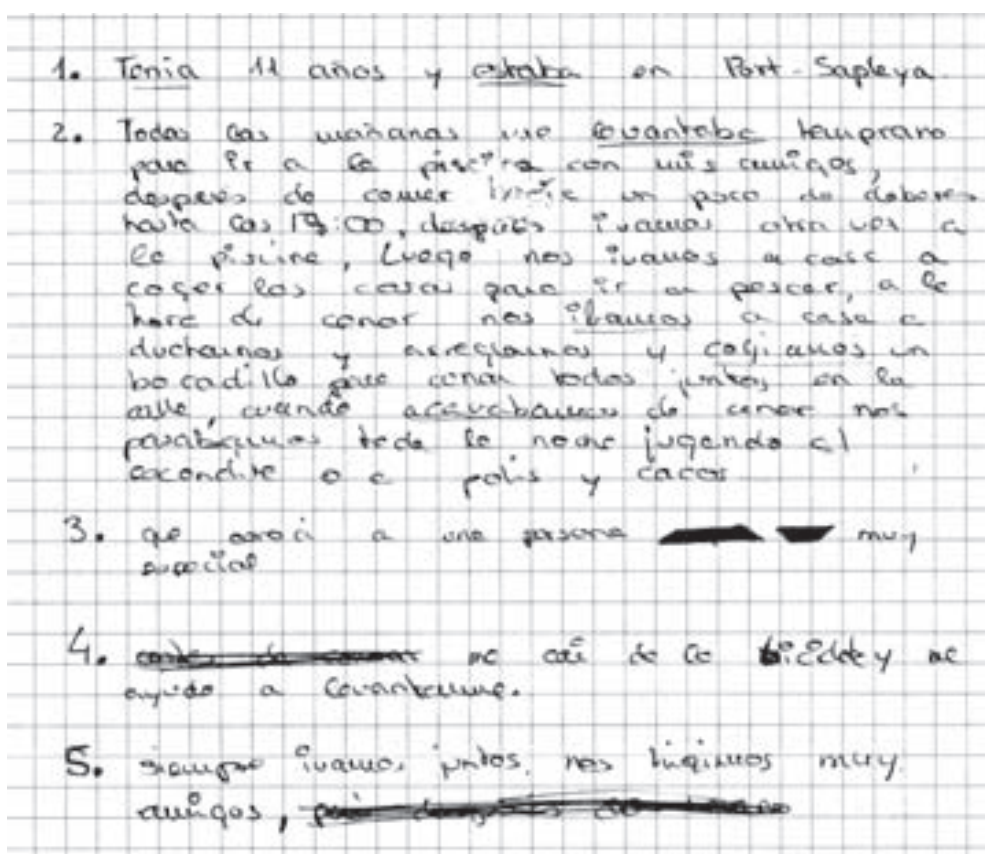 1. Tenia 11 años y estaba en Port-Sapleya.
2. Todas las mañanas me levantaba temprano
para ir a la piscina con mis amigos,
después de comer un poco de deberes
hasta las :00, después ivamos otra vez a
la piscina, Luego nos ivamos a casa a
coger las cosas para ir a pescar, a la
hora de cenar nos ibamos a casa a
ducharnos y arreglarnos y cogiamos un
bocadillo para cenar todos juntos en la
calle, cuando acavabamos de cenar nos
pasabamos toda la noche jugando al
escondite o a polis y cacos
3. que conoci a una persona muy
especial
4. me caí de la y me
ayudo a levantarme.
5. siempre ivamos juntos, nos hicimos muy
amigos,